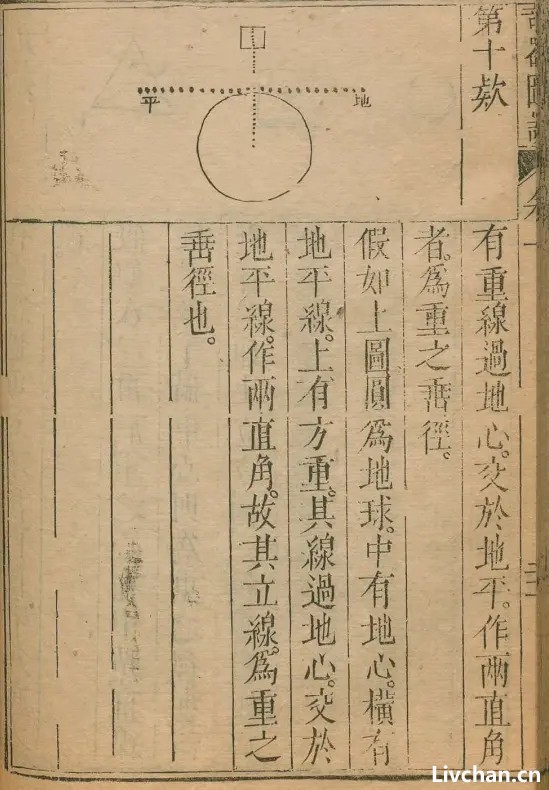 第十款
地
平
有重線過地心。交於地平。作兩直角
者。為重之垂徑。
假如上圖圓為地球。中有地心。橫有
地平線。上有方重。其線過地心。交於
地平線。作兩直角。故其立線。為重之
垂徑也。
Livchan.cn